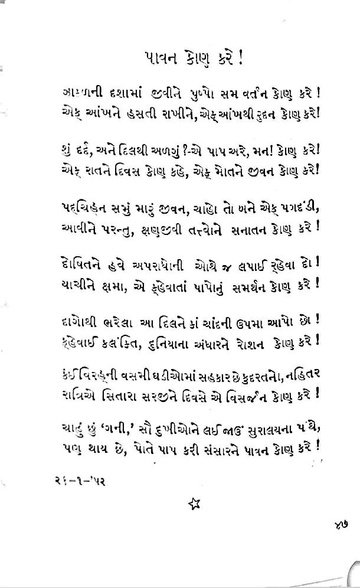 પાવન કોણ કરે !
ઝાકળની દશામાં જીવીને પુષ્પો સમ વર્તન કોણ કરે !
એક આંખને હસતી રાખીને, એક આંખથી રુદન કોણ કરે!
શું દર્દ, અને દિલથી અળગું ?-એ પાપ અરે, મન! કોણ કરે!
એક રાતને દિવસ કોણ કહે, એક મોતને જીવન કોણ કરે!
પદ્ચિહ્ન સમું મારું જીવન, ચાહો તો બને એક પગદંડી,
આવીને પરન્તુ, ક્ષણજીવી તત્ત્વોને સનાતન કોણ કરે !
દોષિતને હવે અપરાધોની ઓથે જ લપાઈ ર્‌હેવા દો !
યાચીને ક્ષમા, એ ક્‌હેવાતાં પાપોનું સમર્થન કોણ કરે !
દાગોથી ભરેલા આ દિલને કાં ચાંદની ઉપમા આપો છો !
ક્‌હેવાઈ કલંકિત, દુનિયાના અંધારને રોશન કોણ કરે !
કંઈ વિરહની વસમી ઘડીઓમાં સહકાર છે કુદરતનો, નહિતર
રાત્રિએ સિતારા સરજીને દિવસે એ વિસર્જન કોણ કરે !
ચાહું છું ‘ગની,’ સૌ દુખીઓને લઈ જાઉં સુરાલયના પંથે,
પણ થાય છે, પોતે પાપ કરી સંસારને પાવન કોણ કરે !
૨૬-૧-'૫૨
૪૭